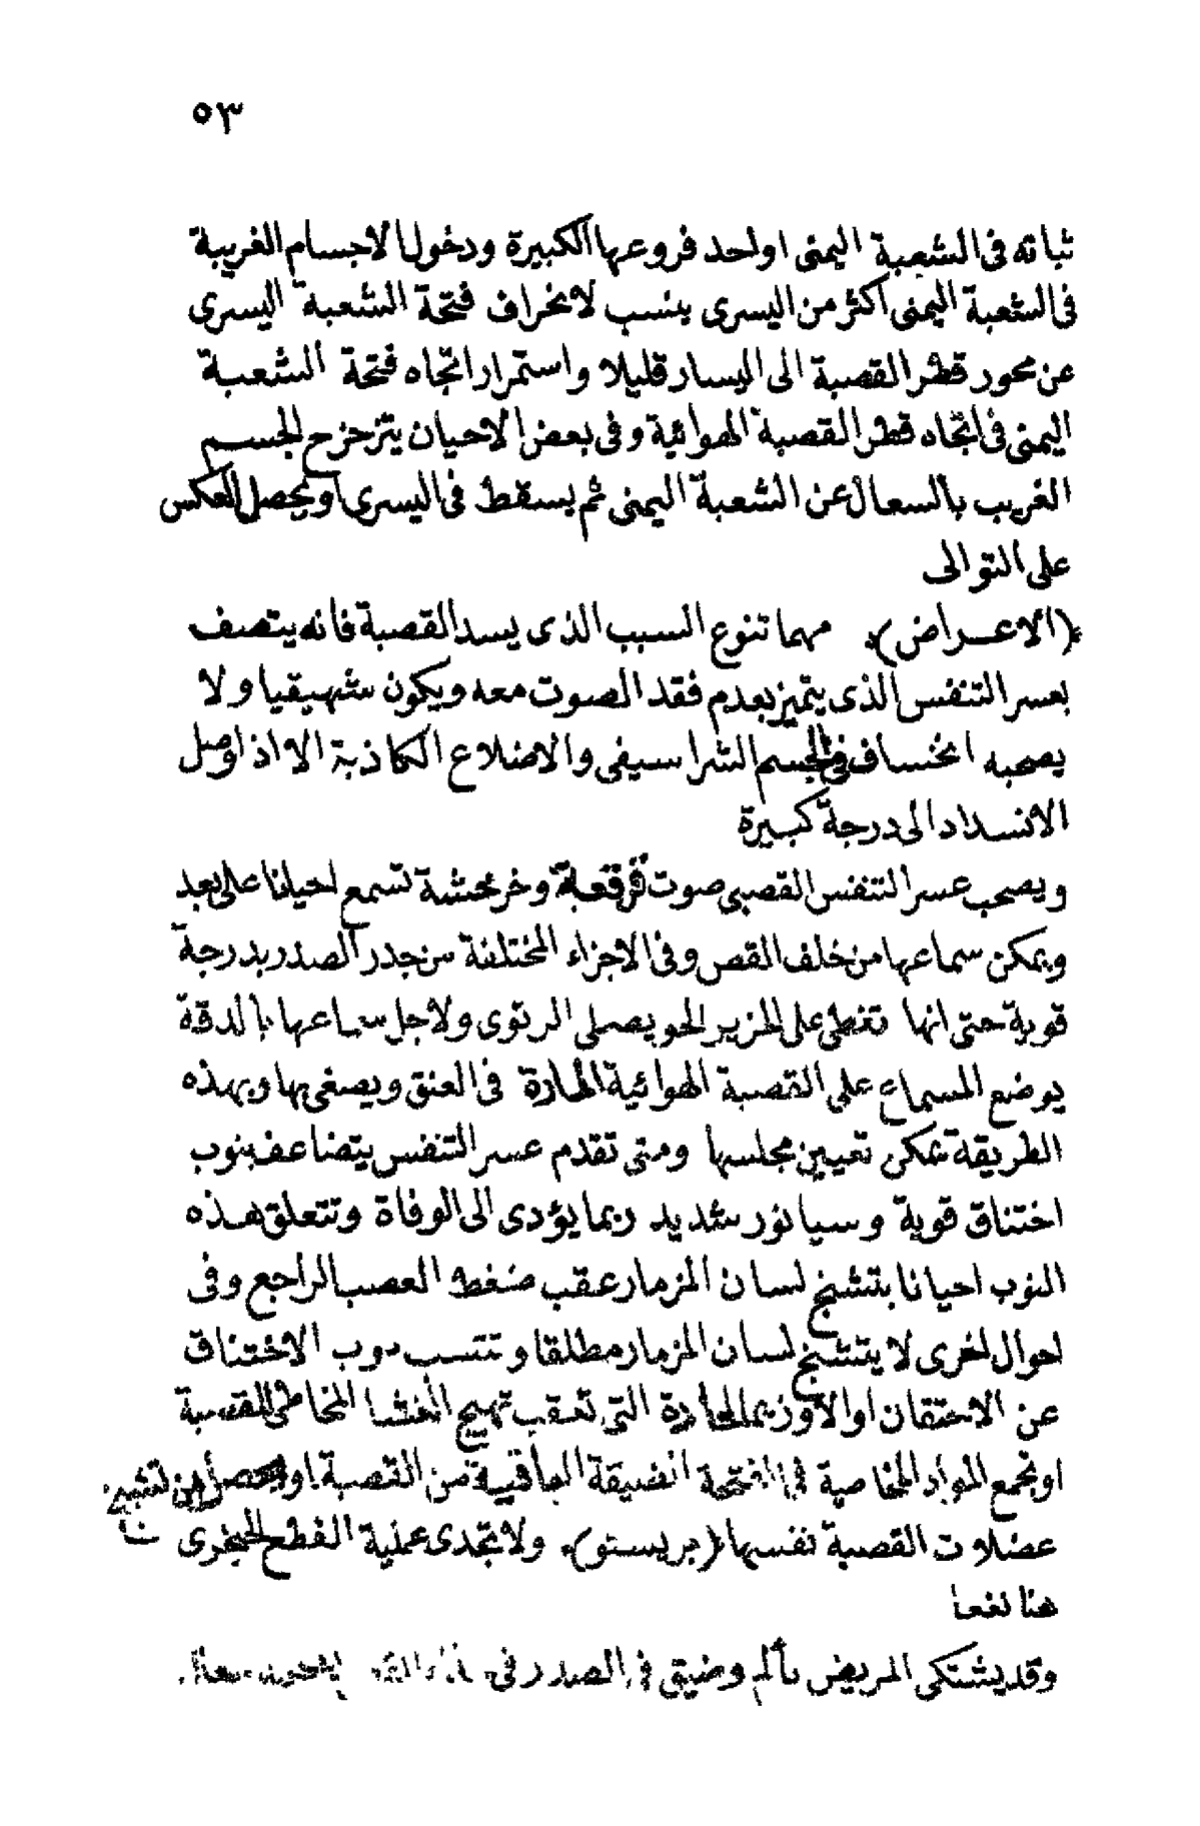 ٥٣
ثباته فى الشعبة اليمنى او احد فروعها الكبيرة ودخول الاجسام الغريبة
فى الشعبة اليمنى اكثر من اليسرى ينسب لانحراف فتحة الشعبة اليسرى
عن محور قطر القصبة الى اليسار قليلا واستمرار اتجاه فتحة الشعبة
اليمنى فى اتجاه قطر القصبة الهوائية وفى بعض الاحيان يتزحزح الجسم
الغريب بالسعال عن الشعبة اليمنى ثم يسقط فى اليسرى او يحصل العكس
على التوالى
(الاعراض) مهما تنوع السبب الذى يسد القصبة فانه يتصف
بعسر التنفس الذى يتميز بعدم فقد الصوت معه ويكون شهيقيا ولا
يصحبه انخساف فى الجسم الشراسيفى والاضلاع الكاذبة الا اذا وصل
الانسداد الى درجة كبيرة
ويصحب عسر التنفس القصبى صوت قرقعة وخرخشة تسمع احيانا على بعد
ويمكن سماعها من خلف القص وفى الاجزاء المختلفة من جدر الصدر بدرجة
قوية حتى انها تغطى على الخرير الحويصلى الرئوى ولاجل سماعها بالدقة
يوضع المسماع على القصبة الهوائية المارة فى العنق ويصغى بها وبهذه
الطريقة يمكن تعيين مجلسها ومتى تقدم عسر التنفس يتضاعف بنوب
اختناق قوية وسيانوز شديد ربما يؤدى الى الوفاة وتتعلق هذه
النوب احيانا بتشنج لسان المزمار عقب ضغط العصب الراجع وفى
احوال اخرى لا يتشنج لسان المزمار مطلقا وتتسبب نوب الاختناق
عن الاحتقان او الاوزيما الحادة التى تعقب تهيج الغشا المخاطى للقصبة
او تجمع المواد المخاطية فى الفتحة الضيقة الباقية من القصبة او تحصل من تشنج
عضلات القصبة نفسها (بريستو) ولا تجدى عملية القطع الحنجرى
هنا نفعا
وقد يشتكى المريض بألم وضيق فى الصدر فى